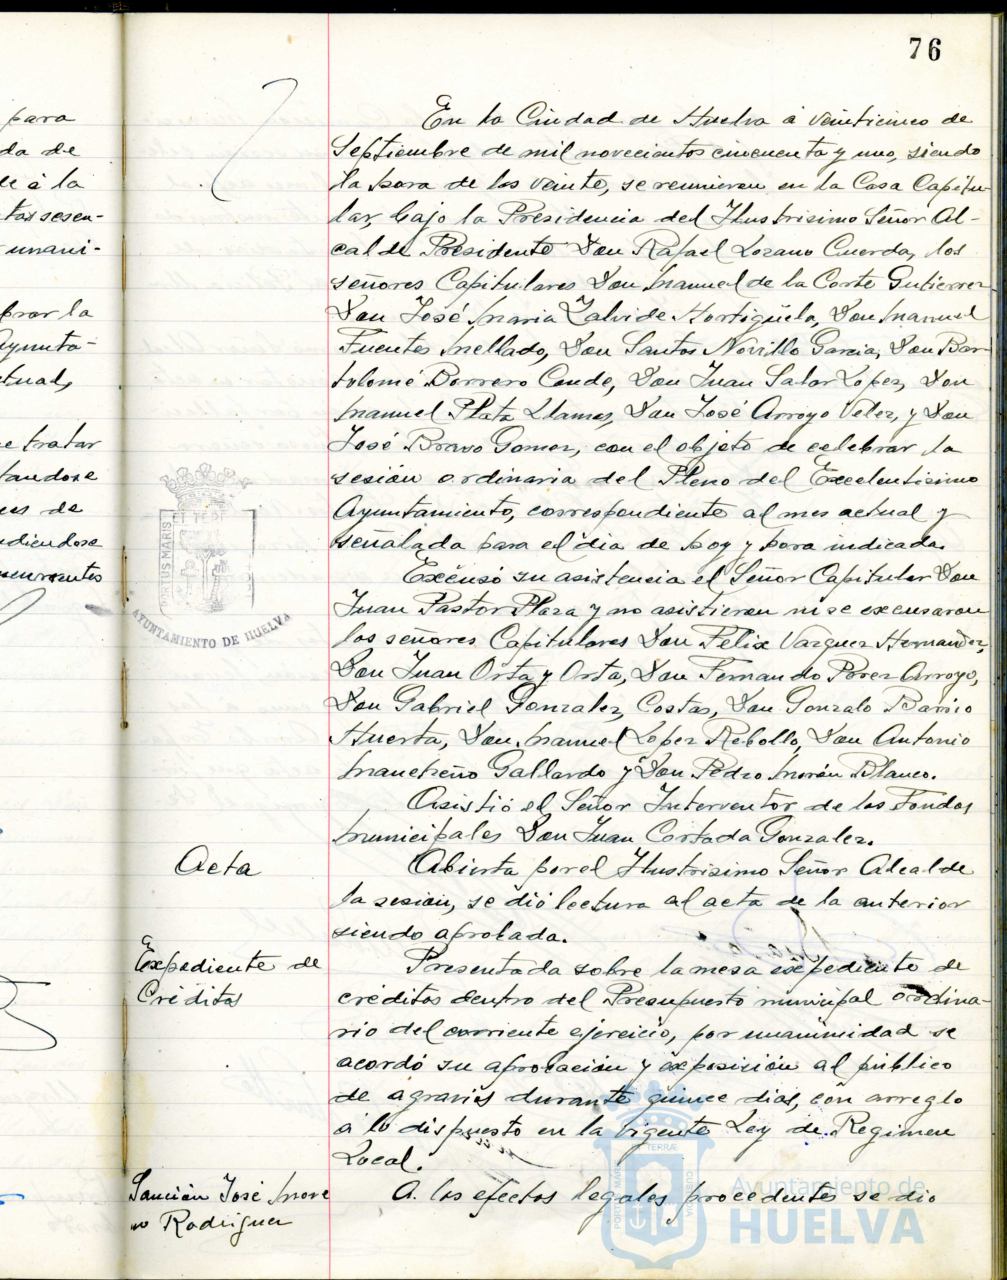 76
para
da de
de á la
tas sesen-
unani-
prar la
Ayunta-
tual,
e tratar
tandose
ces de
ndiendose
ncurrentes
En la Ciudad de Huelva a veinticinco de
Septiembre de mil novecientos cincuenta y uno, siendo
la hora de las veinte, se reunieron en la Casa Capitu-
lar, bajo la Presidencia del Ilustrisimo Señor Al-
calde Presidente Don Rafael Lozano Cuerda, los
señores Capitulares Don Manuel de la Corte Gutierrez
Don José Maria Zalvide Hortigüela, Don Manuel
Fuentes Mellado, Don Santos Novillo Garcia, Don Bar
tolomé Borrero Conde, Don Juan Salar Lopez, Don
Manuel Plata Llamas, Don José Arroyo Velez, y Don
José Bravo Gomez, con el objeto de celebrar la
sesión ordinaria del Pleno del Excelentisimo
Ayuntamiento, correspondiente al mes actual y
señalada para el dia de hoy y hora indicada.
Excusó su asistencia el Señor Capitular Don
Juan Pastor Plaza y no asistieron ni se excusaron
los señores Capitulares Don Felix Vazquez Hernandez,
Don Juan Orta y Orta, Don Fernando Perez Arroyo,
Don Gabriel Gonzalez Costas, Don Gonzalo Barrio
Huerta, Don Manuel Lopez Rebollo, Don Antonio
Mancheño Gallardo y Don Pedro Morán Blanco.
Asistió el Señor Interventor de los Fondos
Municipales Don Juan Cortada Gonzalez.
Acta
Abierta por el Ilustrisimo Señor Alcalde
la sesión, se dió lectura al acta de la anterior
siendo aprobada.
Expediente de
Créditos
Presentada sobre la mesa expediente de
créditos dentro del Presupuesto municipal ordina-
rio del corriente ejercicio, por unanimidad se
acordó su aprobación y exposición al público
de agravios durante quince dias, con arreglo
a lo dispuesto en la vigente Ley de Regimen
Local.
Sanción José More
no Rodriguez
A los efectos legales procedentes se dio
PORTUS MARIS
ET TERR
AYUNTAMIENTO DE HUELVA
PORTUS MARIS
ET TERRÆ
CUSTODIA
Ayuntamiento de
HUELVA